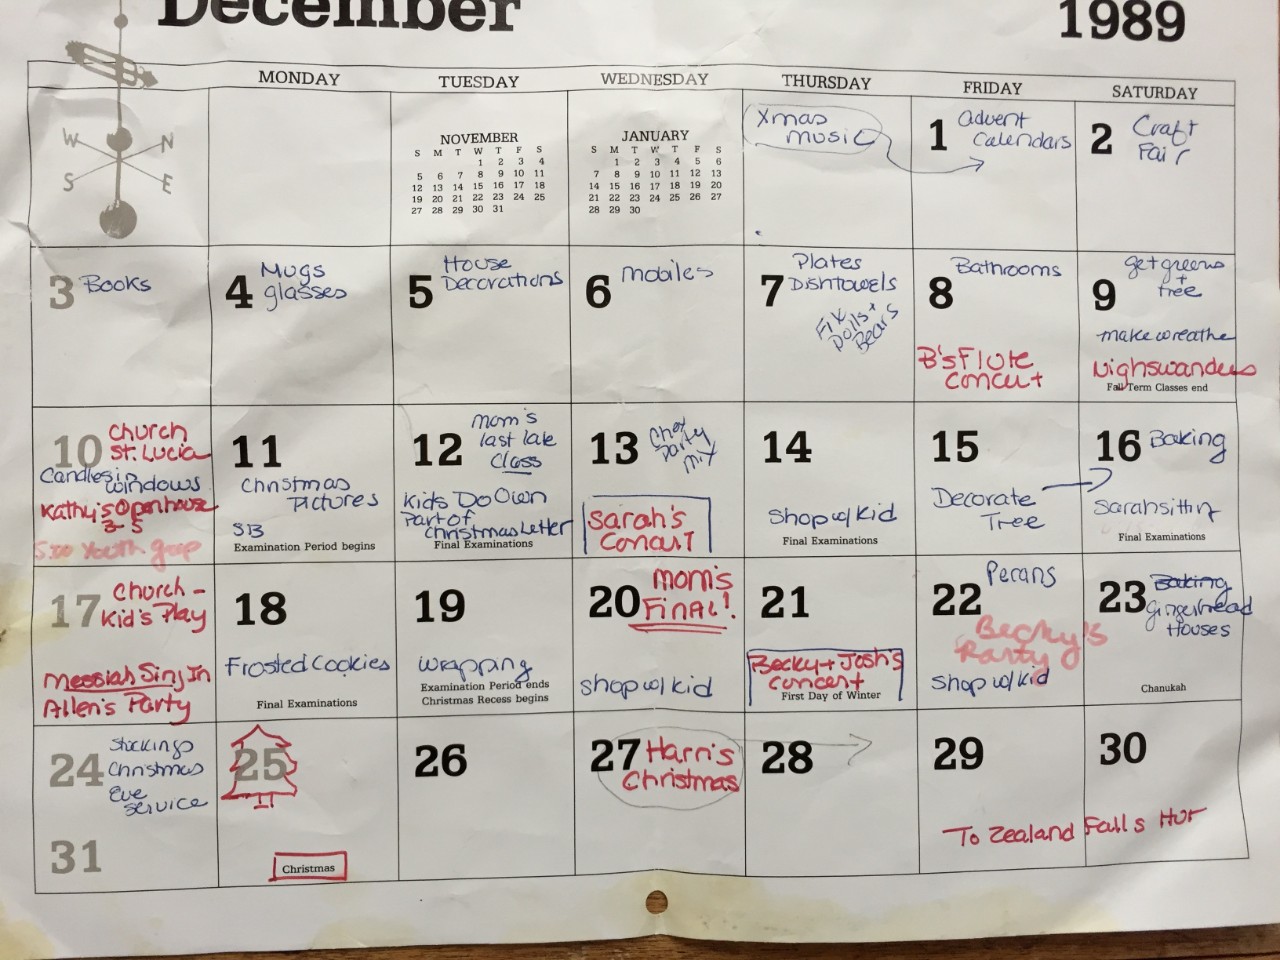 December 1989
MONDAY TUESDAY WEDNESDAY THURSDAY FRIDAY SATURDAY
W N
S E
NOVEMBER
S M T W T F S
1 2 3 4
5 6 7 8 9 10 11
12 13 14 15 16 17 18
19 20 21 22 23 24 25
27 28 29 30 31
JANUARY
S M T W T F S
1 2 3 4 5 6
7 8 9 10 11 12 13
14 15 16 17 18 19 20
21 22 23 24 25 26 27
28 29 30
Xmas
music
1 Advent
Calendars
2 Craft
Fair
3 Books
4 Mugs
glasses
5 House
Decorations
6 mobiles
7 Plates
Dishtowels
Fix
Dolls +
Bears
8 Bathrooms
B's Flute
Concert
9 get greens
+
tree
make wreathe
Nighswanders
Fall Term Classes end
10 Church
St. Lucia
Candles in
windows
Kathy's Openhouse
3-5
5:00 Youth
11
Christmas
Pictures
SB
Examination Period begins
12 mom's
last late
Class
Kids Do Own
Part of
Christmas Letter
Final Examinations
13 Chex
Party
mix
Sarah's
Concert
14
Shop w/ Kid
Final Examinations
15
Decorate
Tree
16 Baking
Sarahsitting
Final Examinations
17 Church -
Kid's Play
Messiah Sing In
Allen's Party
18
Frosted Cookies
Final Examinations
19
wrapping
Examination Period ends
Christmas Recess begins
20 mom's
FINAL!
shop w/ kid
21
Becky + Josh's
concert
First Day of Winter
22 Pecans
Becky's
Party
shop w/ kid
23 Baking
gingerbread
Houses
Chanukah
24 Stockings
Christmas
Eve
service
31
25
Christmas
26
27 Harris
Christmas
28
29
30
To Zealand Falls Hut